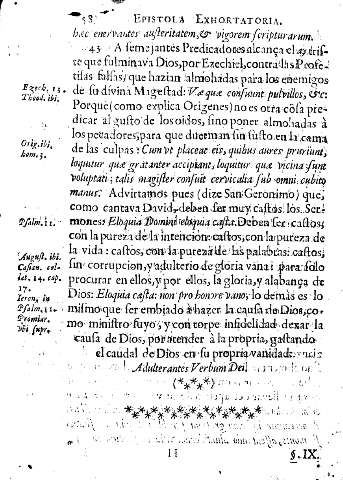 58 EPISTOLA EXHORTATORIA.
hæc enervantes austeritatem, & vigorem scripturarum.
43 A semejantes Predicadores alcança el tris-
te que fulminava Dios, por Ezechiel, contra las Profe-
tisas falsas, que hazian almohadas para los enemigos
de su divina Magestad: Væ quæ consuunt pulvillos, &c:
Porque (como explica Origenes) no es otra cosa pre-
dicar al gusto de los oidos, sino poner almohadas à
los pecadores, para que duerman sin susto en la cama
de las culpas: Cum vt placeat eis, quibus aures pruriunt,
loquitur quæ gratanter accipiant, loquitur quæ vicina sunt
voluptati; talis magister consuit cervicalia sub omni cubito
manus. Advirtamos pues (dize San Geronimo) que,
como cantava David, deben ser muy castos los Ser-
mones: Eloquia Domini eloquia casta. Deben ser castos,
con la pureza de la intencion: castos, con la pureza de
la vida: castos, con la pureza de las palabras: castos,
sin corrupcion, y adulterio de gloria vana: para solo
procurar en ellos, y por ellos, la gloria, y alabança de
Dios: Eloquia casta: non pro honore vano; lo demàs es lo
mismo que ser embiado à hazer la causa de Dios, co-
mo ministro suyo, y con torpe infidelidad dexar la
causa de Dios, por atender à la propria, gastando
el caudal de Dios en su propria vanidad:
Adulterantes Verbum Dei.
(***)
**************
II §. IX.
Ezech. 13.
Theod. ibi.
Orig. ibi,
hom. 3.
Psalm. 11.
August. ibi.
Casian. col-
lat. 14. cap.
17.
Ieron. in
Psalm. 11.
Premiar.
vbi supr.